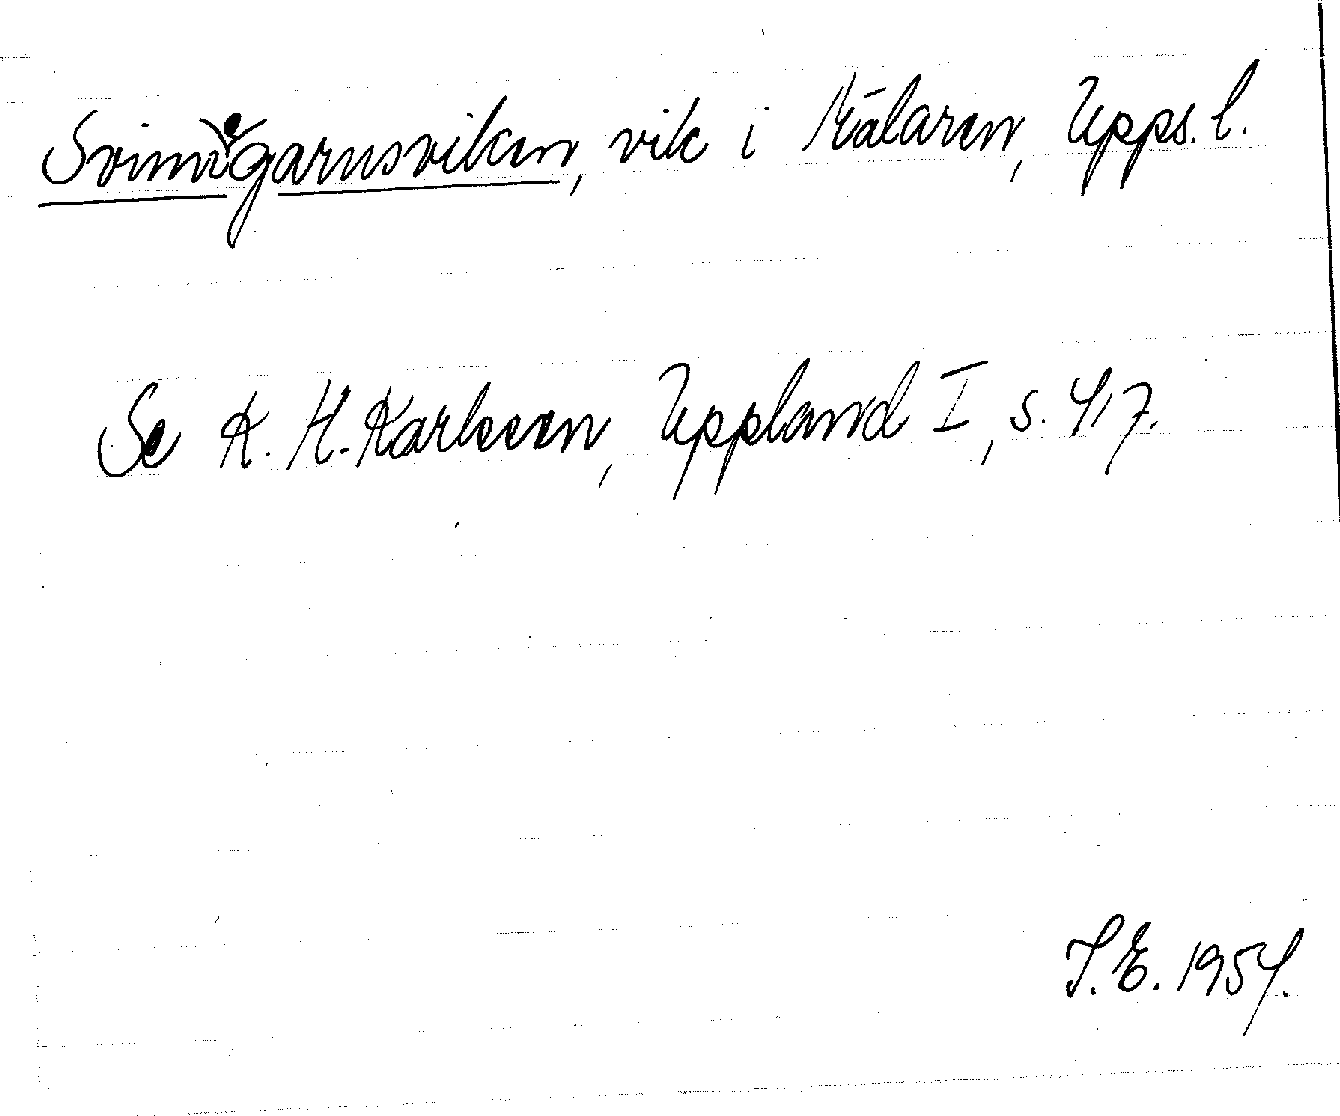 Svinnegarnsviken, vik i Mälaren, Upps. l.
Se K. H. Karlsson, Uppland I, s. 417.
I. E. 1954.